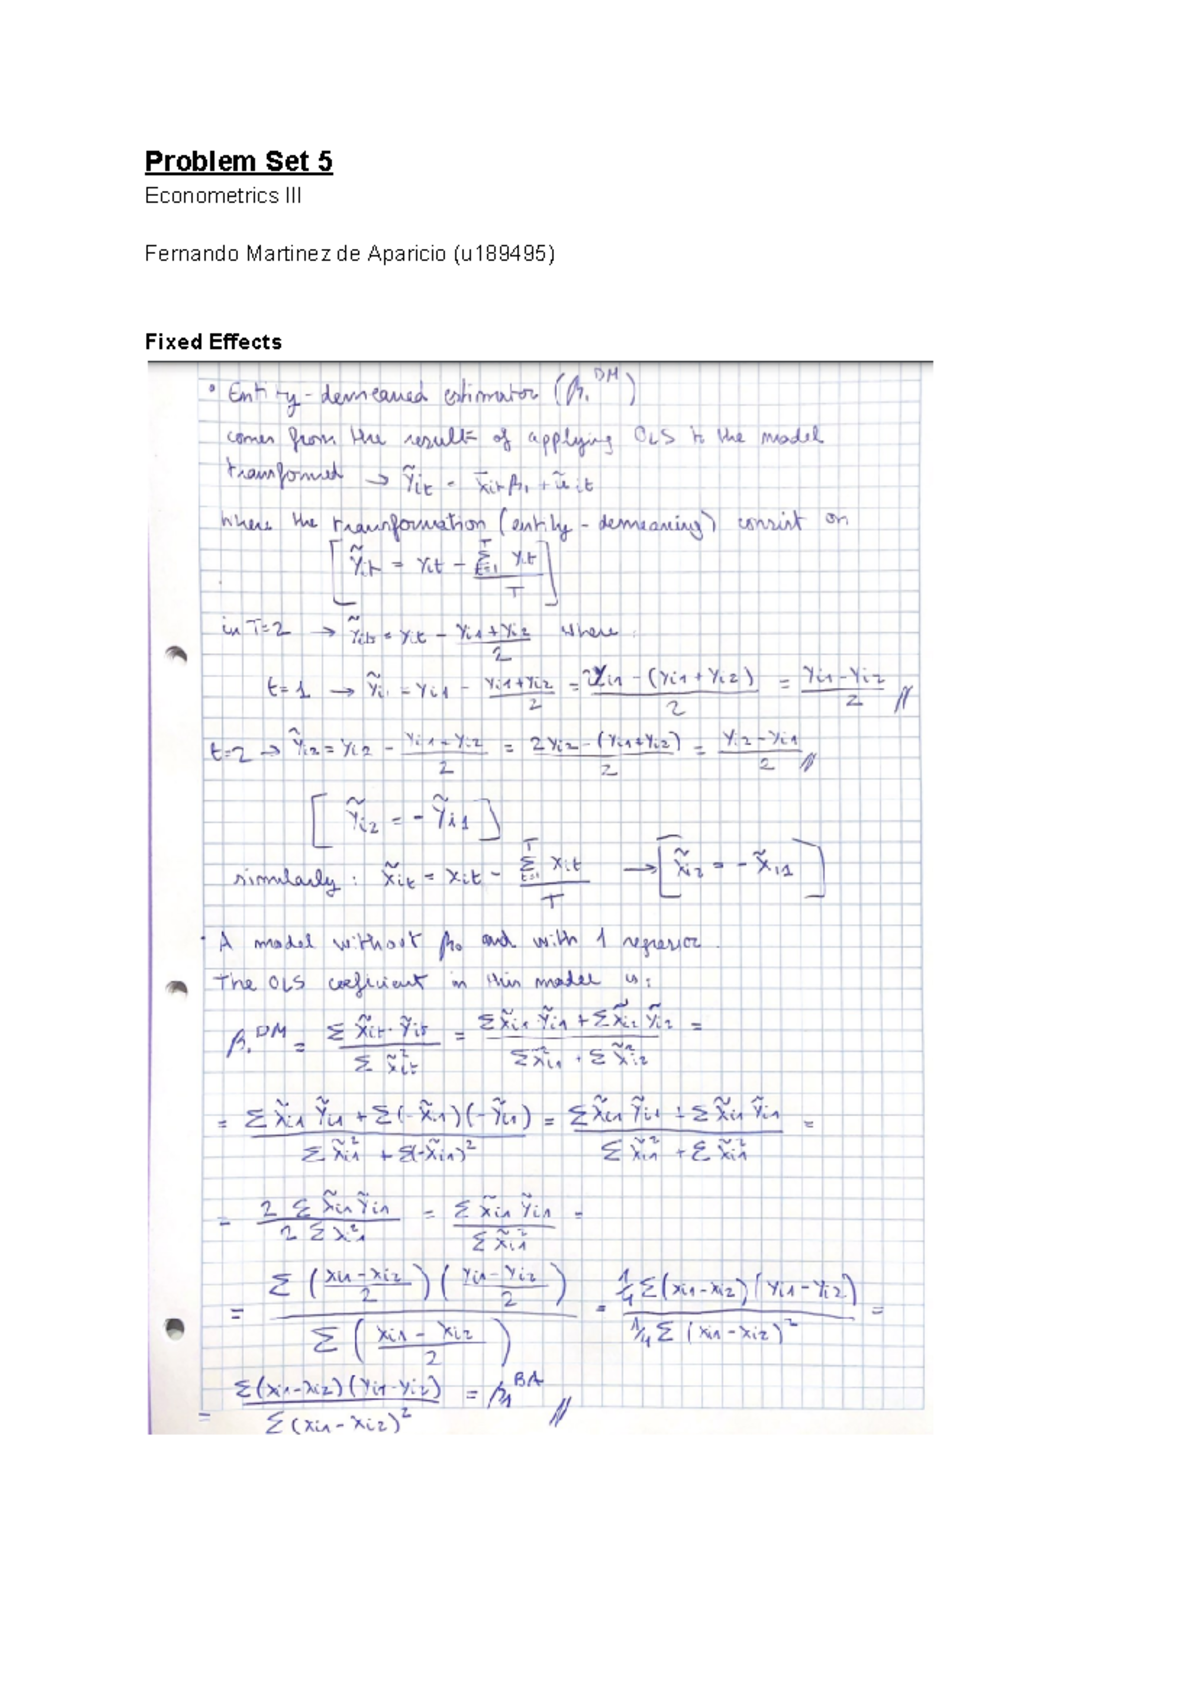 Problem Set 5
Econometrics III
Fernando Martinez de Aparicio (u189495)
Fixed Effects
• Entity-demeaned estimator (β₁^DM)
comes from the result of applying OLS to the model
transformed → ỹit = x̃it β₁ + ũit
where the transformation (entity-demeaning) consist on
[ỹit = yit - Σ_{t=1}^T yit / T]
in T=2 → ỹit = yit - (yi1 + yi2)/2 where:
t=1 → ỹi1 = yi1 - (yi1+yi2)/2 = (2yi1 - (yi1 + yi2))/2 = (yi1 - yi2)/2 //
t=2 → ỹi2 = yi2 - (yi1 + yi2)/2 = (2yi2 - (yi1+yi2))/2 = (yi2 - yi1)/2 //
[ỹi2 = - ỹi1]
similarly: x̃it = xit - Σ_{t=1}^T xit / T → [x̃i2 = - x̃i1]
• A model without β₀ and with 1 regresor.
The OLS coeficient in this model is:
β₁^DM = Σ x̃it · ỹit / Σ x̃it² = (Σ x̃i1 ỹi1 + Σ x̃i2 ỹi2) / (Σ x̃i1² + Σ x̃i2²) =
= (Σ x̃i1 ỹi1 + Σ(-x̃i1)(-ỹi1)) / (Σ x̃i1² + Σ(-x̃i1)²) = (Σ x̃i1 ỹi1 + Σ x̃i1 ỹi1) / (Σ x̃i1² + Σ x̃i1²) =
= 2 Σ x̃i1 ỹi1 / 2 Σ x̃i1² = Σ x̃i1 ỹi1 / Σ x̃i1² =
= Σ ((xi1 - xi2)/2) ((yi1 - yi2)/2) / Σ ((xi1 - xi2)/2) = 1/4 Σ (xi1 - xi2)(yi1 - yi2) / 1/4 Σ (xi1 - xi2)² =
= Σ(xi1 - xi2)(yi1 - yi2) / Σ(xi1 - xi2)² = β₁^BA //